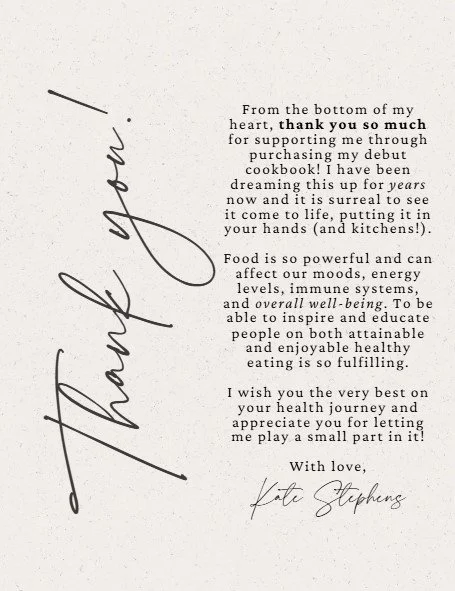 Thank you!
From the bottom of my
heart, thank you so much
for supporting me through
purchasing my debut
cookbook! I have been
dreaming this up for years
now and it is surreal to see
it come to life, putting it in
your hands (and kitchens!).
Food is so powerful and can
affect our moods, energy
levels, immune systems,
and overall well-being. To be
able to inspire and educate
people on both attainable
and enjoyable healthy
eating is so fulfilling.
I wish you the very best on
your health journey and
appreciate you for letting
me play a small part in it!
With love,
Kate Stephens